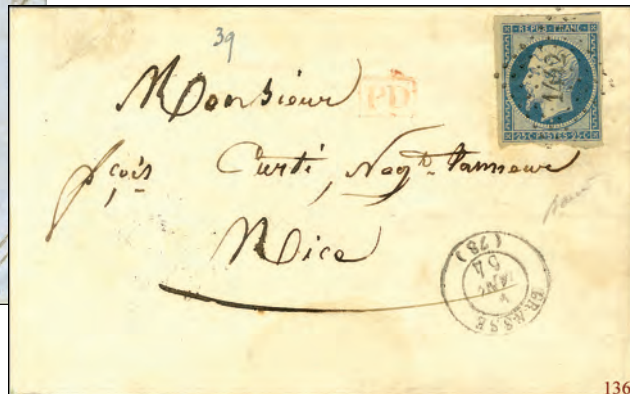 39
REPUB. FRANC.
1442
25 C. POSTES 25 C.
Monsieur
PD
fçois Curti, Negt. tanneur
Nice
GRASSE
JANV.
54
(78)
136